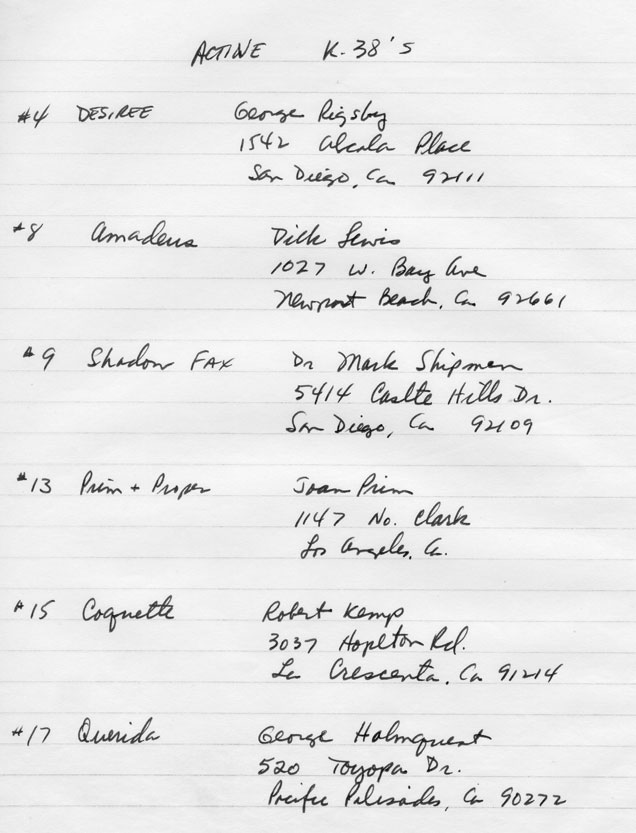 ACTIVE K-38's
#4 DESIREE George Rigsby
1542 Alcala Place
San Diego, Ca 92111
#8 Amadeus Dick Lewis
1027 W. Bay Ave
Newport Beach, Ca 92661
#9 Shadow FAX Dr Mark Shipman
5414 Caslte Hills Dr.
San Diego, Ca 92109
#13 Prim + Proper Joan Prim
1147 No. Clark
Los Angeles, Ca.
#15 Coquette Robert Kemp
3037 Hopleton Rd.
La Crescenta, Ca 91214
#17 Querida George Holmquest
520 Toyopa Dr.
Pacific Palisades, Ca 90272